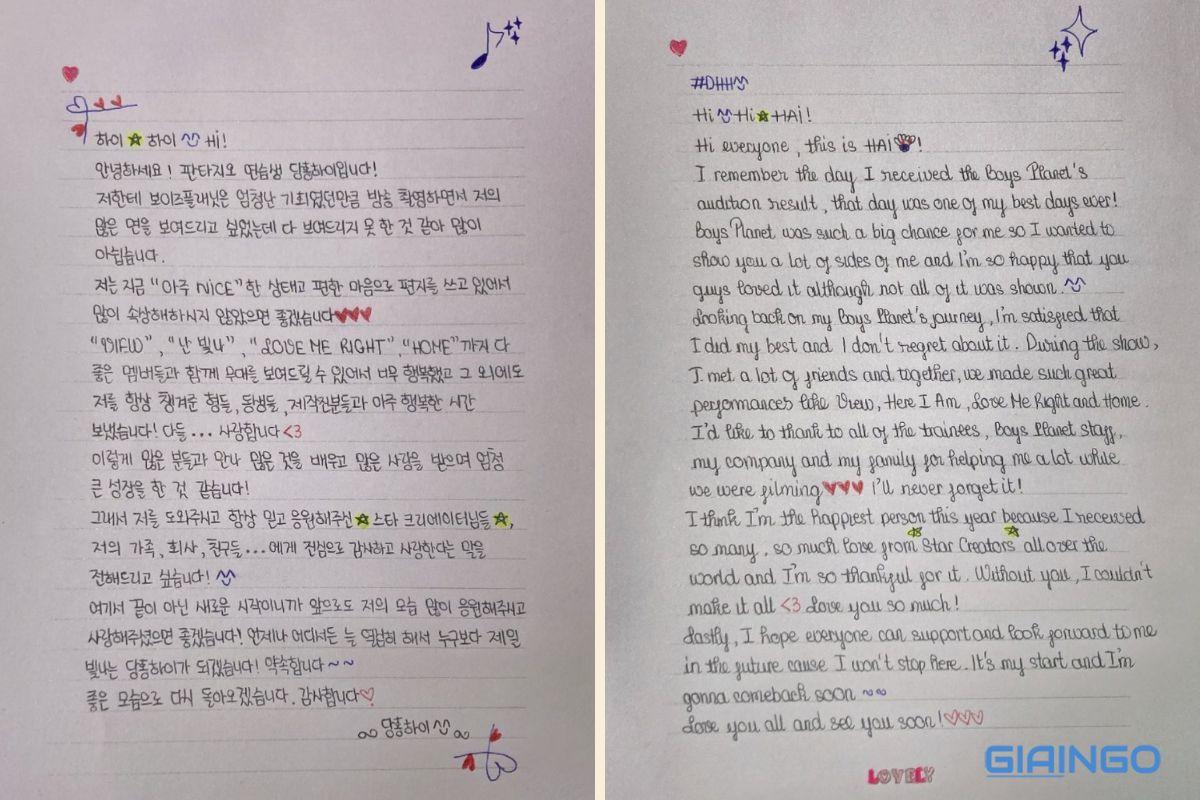 하이☆하이 Hi!
안녕하세요! 판타지오 연습생 당홍하이입니다!
저한테 보이즈플래닛은 엄청난 기회였던만큼 방송 촬영하면서 저의
많은 면을 보여드리고 싶었는데 다 보여드리지 못 한 것 같아 많이
아쉽습니다.
저는 지금 "아주 NICE"한 상태고 편한 마음으로 편지를 쓰고 있어서
많이 속상해하시지 않았으면 좋겠습니다♥♥♥
"VIEW", "난 빛나", "LOVE ME RIGHT", "HOME"까지 다
좋은 멤버들과 함께 무대를 보여드릴 수 있어서 너무 행복했고 그 외에도
저를 항상 챙겨준 형들, 동생들, 제작진분들과 아주 행복한 시간
보냈습니다! 다들... 사랑합니다<3
이렇게 많은 분들과 만나 많은 것을 배우고 많은 사랑을 받으며 엄청
큰 성장을 한 것 같습니다!
그래서 저를 도와주시고 항상 믿고 응원해주신☆스타 크리에이터님들☆,
저의 가족, 회사, 친구들...에게 진심으로 감사하고 사랑한다는 말을
전해드리고 싶습니다!
여기서 끝이 아닌 새로운 시작이니까 앞으로도 저의 모습 많이 응원해주시고
사랑해주셨으면 좋겠습니다! 언제나 어디서든 늘 열심히 해서 누구보다 제일
빛나는 당홍하이가 되겠습니다! 약속합니다~~
좋은 모습으로 다시 돌아오겠습니다. 감사합니다♡
당홍하이
#DHH
Hi Hi☆HAI!
Hi everyone, this is HAI!
I remember the day I received the Boys Planet's
audition result, that day was one of my best days ever!
Boys Planet was such a big chance for me so I wanted to
show you a lot of sides of me and I'm so happy that you
guys loved it although not all of it was shown.
Looking back on my Boys Planet's journey, I'm satisfied that
I did my best and I don't regret about it. During the show,
I met a lot of friends and together, we made such great
performances like View, Here I Am, Love Me Right and Home.
I'd like to thank to all of the trainees, Boys Planet staff,
my company and my family for helping me a lot while
we were filming♥♥♥ I'll never forget it!
I think I'm the happiest person this year because I received
so many, so much love from Star Creators all over the
world and I'm so thankful for it. Without you, I couldn't
make it all <3 Love you so much!
Lastly, I hope everyone can support and look forward to me
in the future cause I won't stop here. It's my start and I'm
gonna comeback soon ~~
Love you all and see you soon!♡♡♡
LOVELY
GIAINGO